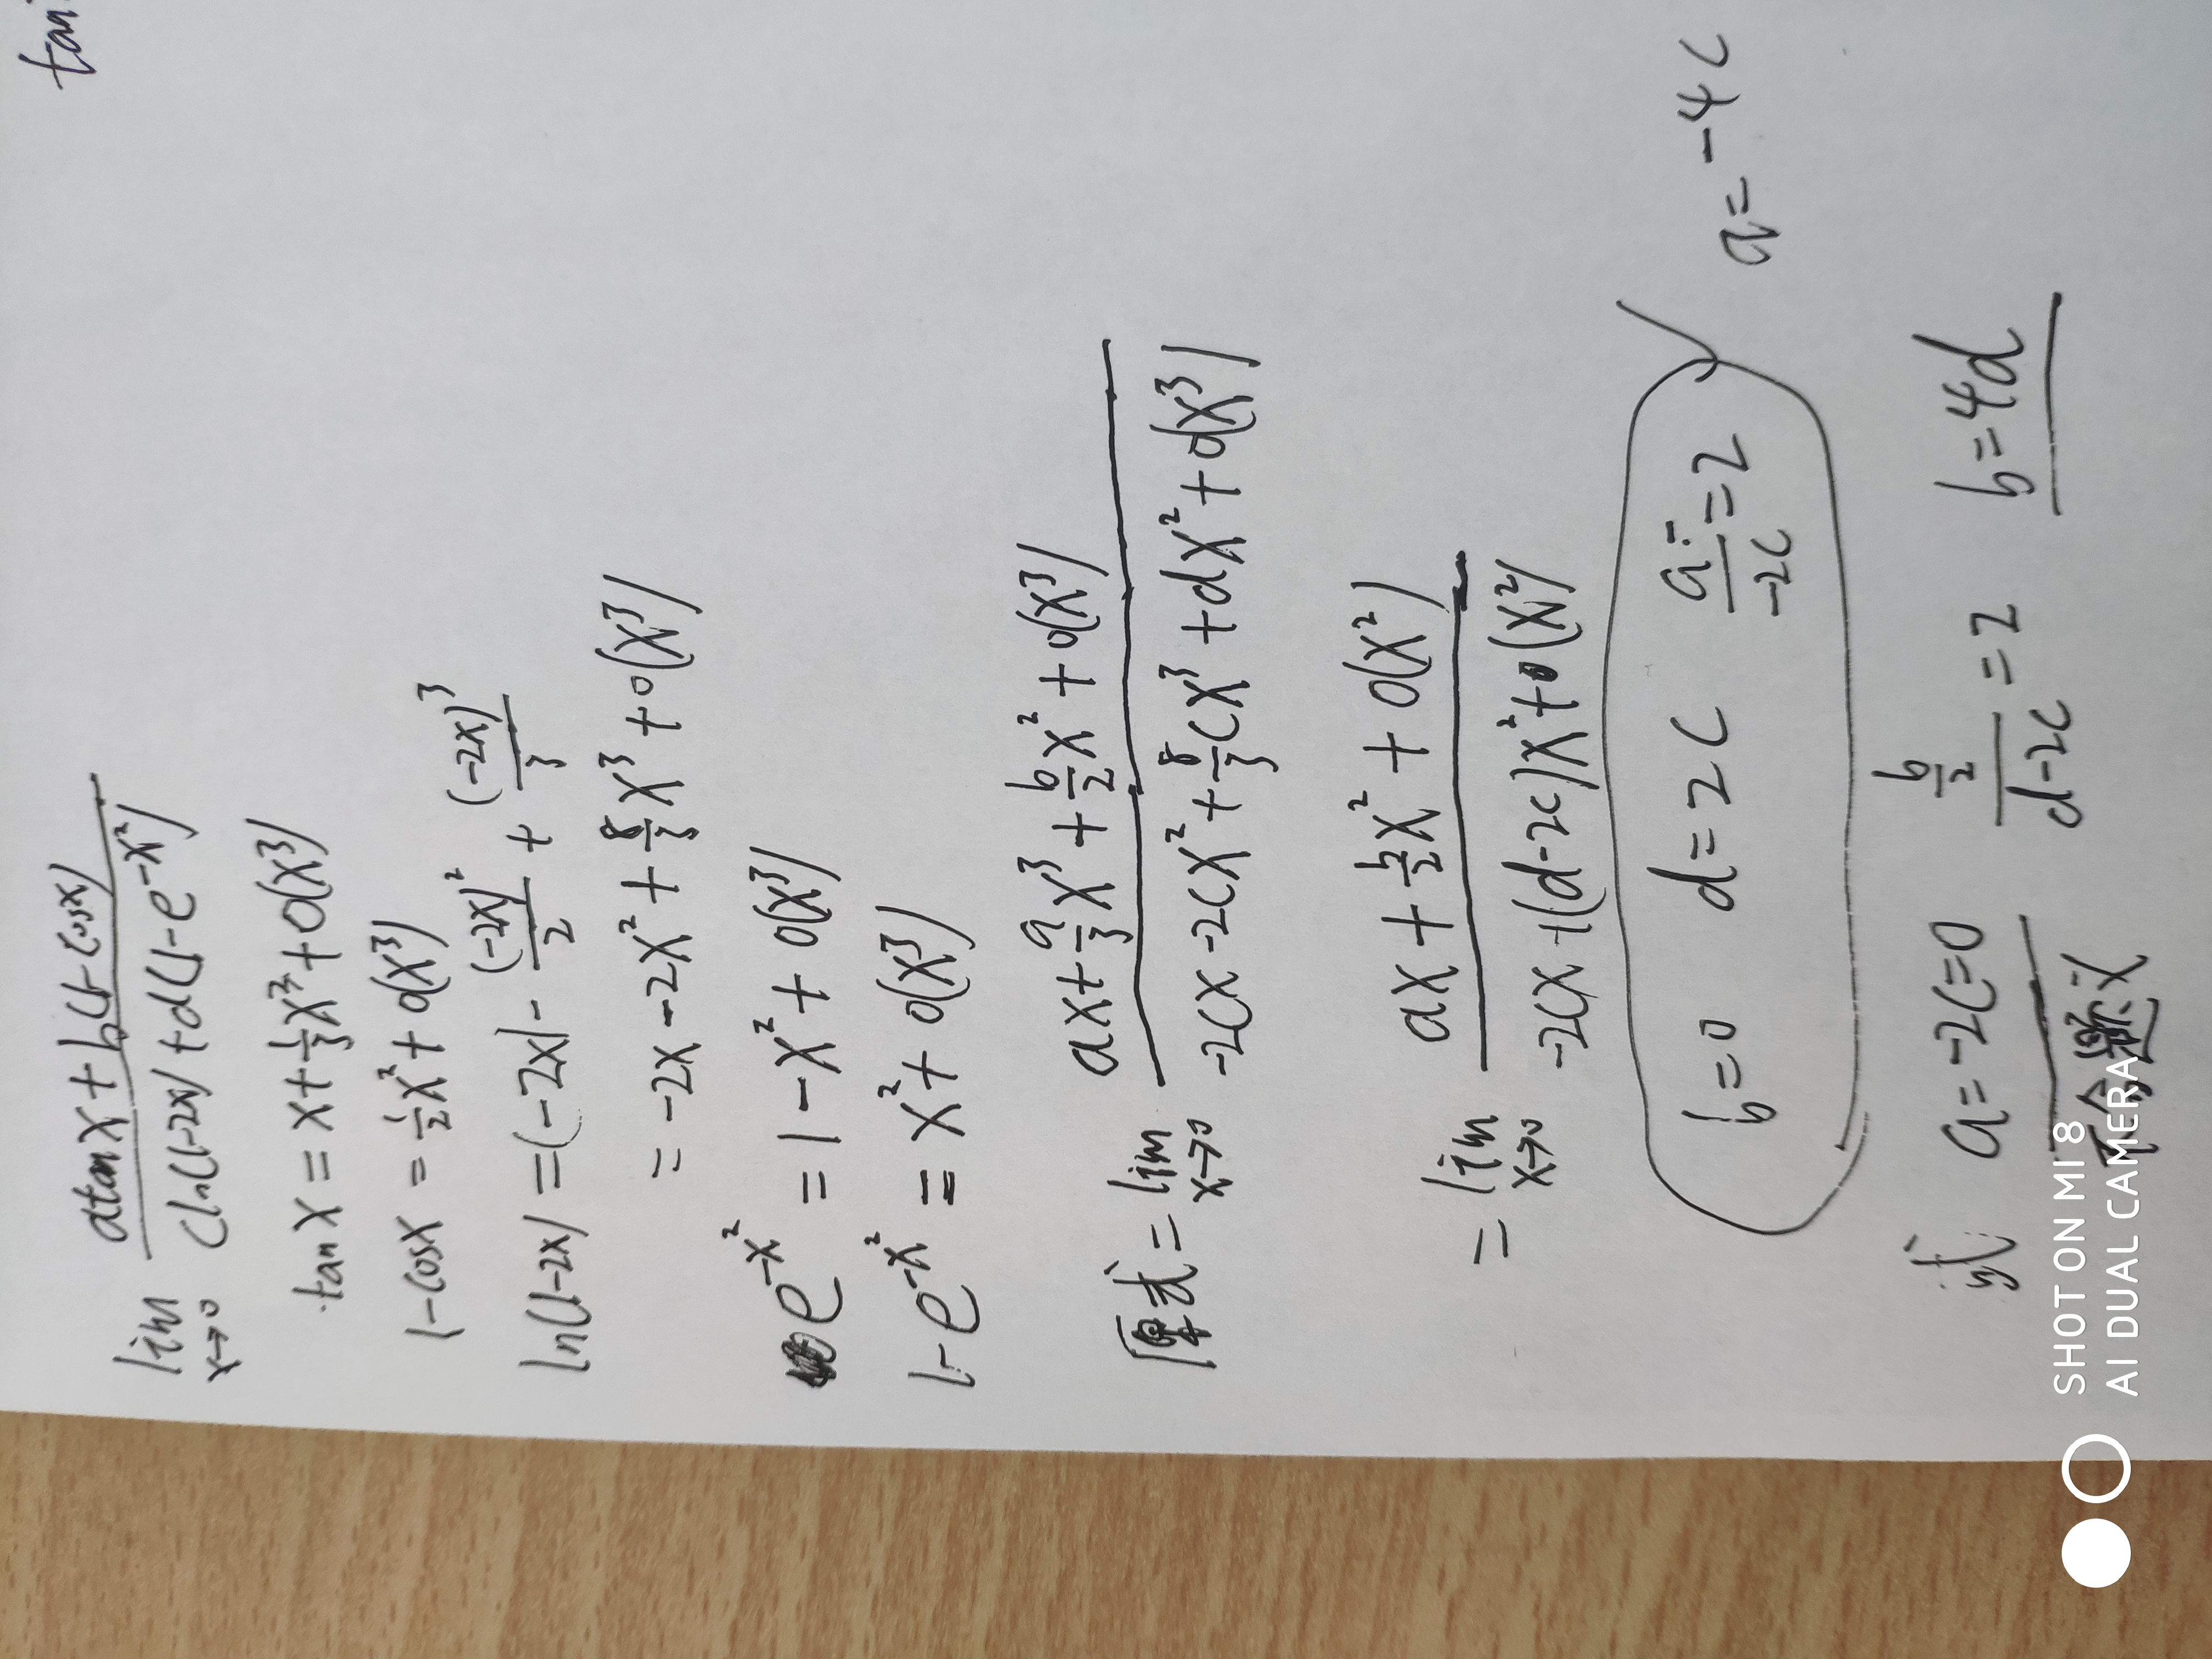 tan
lim x→0 (a tan x + b(1-cosx)) / (c ln(1-2x) + d(1-e^{-x²}))
tan x = x + 1/3 x³ + o(x³)
1-cosx = 1/2 x² + o(x³)
ln(1-2x) = (-2x) - (-2x)²/2 + (-2x)³/3
= -2x - 2x² + 8/3 x³ + o(x³)
e^{-x²} = 1 - x² + o(x³)
1-e^{-x²} = x² + o(x³)
原式 = lim x→0 (ax + a/3 x³ + b/2 x² + o(x³)) / (-2cx - 2cx² + 8/3 cx³ + dx² + o(x³))
= lim x→0 (ax + b/2 x² + o(x²)) / (-2cx + (d-2c)x² + o(x²))
b=0 d=2c a/-2c = 2 a=-4c
或 a=-2c=0 (b/2)/(d-2c) = 2 b=4d
不合题义
SHOT ON MI 8
AI DUAL CAMERA